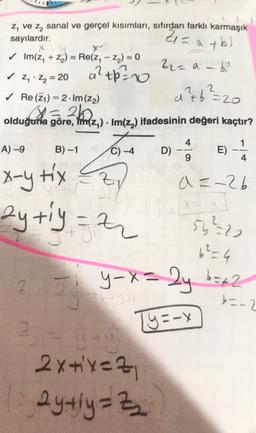 z₁ ve z₂ sanal ve gerçel kısımları, sıfırdan farklı karmaşık
sayılardır.
z₁ = a + bi
✓ Im(z₁ + z₂) = Re(z₁ − z₂) = 0
z₂ = a − bi
✓ z₁ · z₂ = 20
a² + b² = 20
✓ Re(z̄₁) = 2 · Im(z₂)
olduğuna göre, Im(z₁) · Im(z₂) ifadesinin değeri kaçtır?
A) −9 B) −1 C) −4 D) −4/9 E) −1/4
x−y+ix = z₁
a = −2b
2y+iy = z₂
5b² = 20
b² = 4
y−x = 2y
b = +2
b = −2
y = −x
2x+ix = z₁
2y+iy = z₂